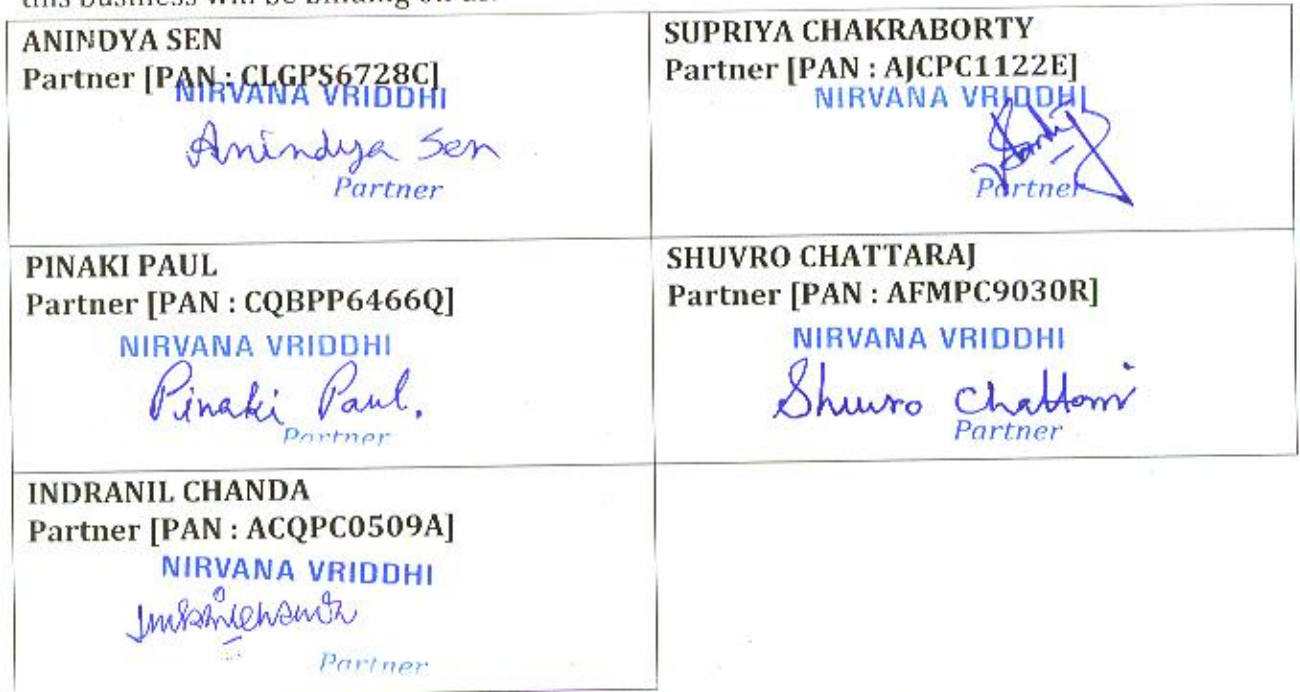 this business will be binding on us.
ANINDYA SEN
Partner [PAN : CLGPS6728C]
NIRVANA VRIDDHI
Anindya Sen
Partner
SUPRIYA CHAKRABORTY
Partner [PAN : AJCPC1122E]
NIRVANA VRIDDHI
Partner
PINAKI PAUL
Partner [PAN : CQBPP6466Q]
NIRVANA VRIDDHI
Pinaki Paul.
Partner
SHUVRO CHATTARAJ
Partner [PAN : AFMPC9030R]
NIRVANA VRIDDHI
Shuvro
Partner
INDRANIL CHANDA
Partner [PAN : ACQPC0509A]
NIRVANA VRIDDHI
Partner